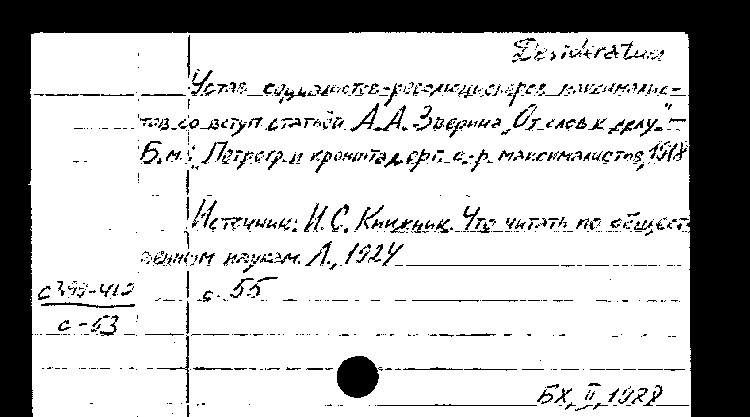 Desideratum
Устав социалистов-революционеров максималис-
тов со вступ. статьей А.А. Зверина „От слов к делу." —
Б.м.: Петрогр. и кронштад. орг. с.-р. максималистов, 1918
Источник: И.С. Книжник. Что читать по общест-
венном наукам. Л., 1924
с. 55
с - 53
БХ, II, 1928